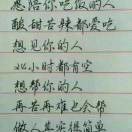 想陪你吃饭的人
酸甜苦辣都爱吃
想见你的人
24小时都有空
想帮你的人
再苦再难也会帮
做人其实很简单